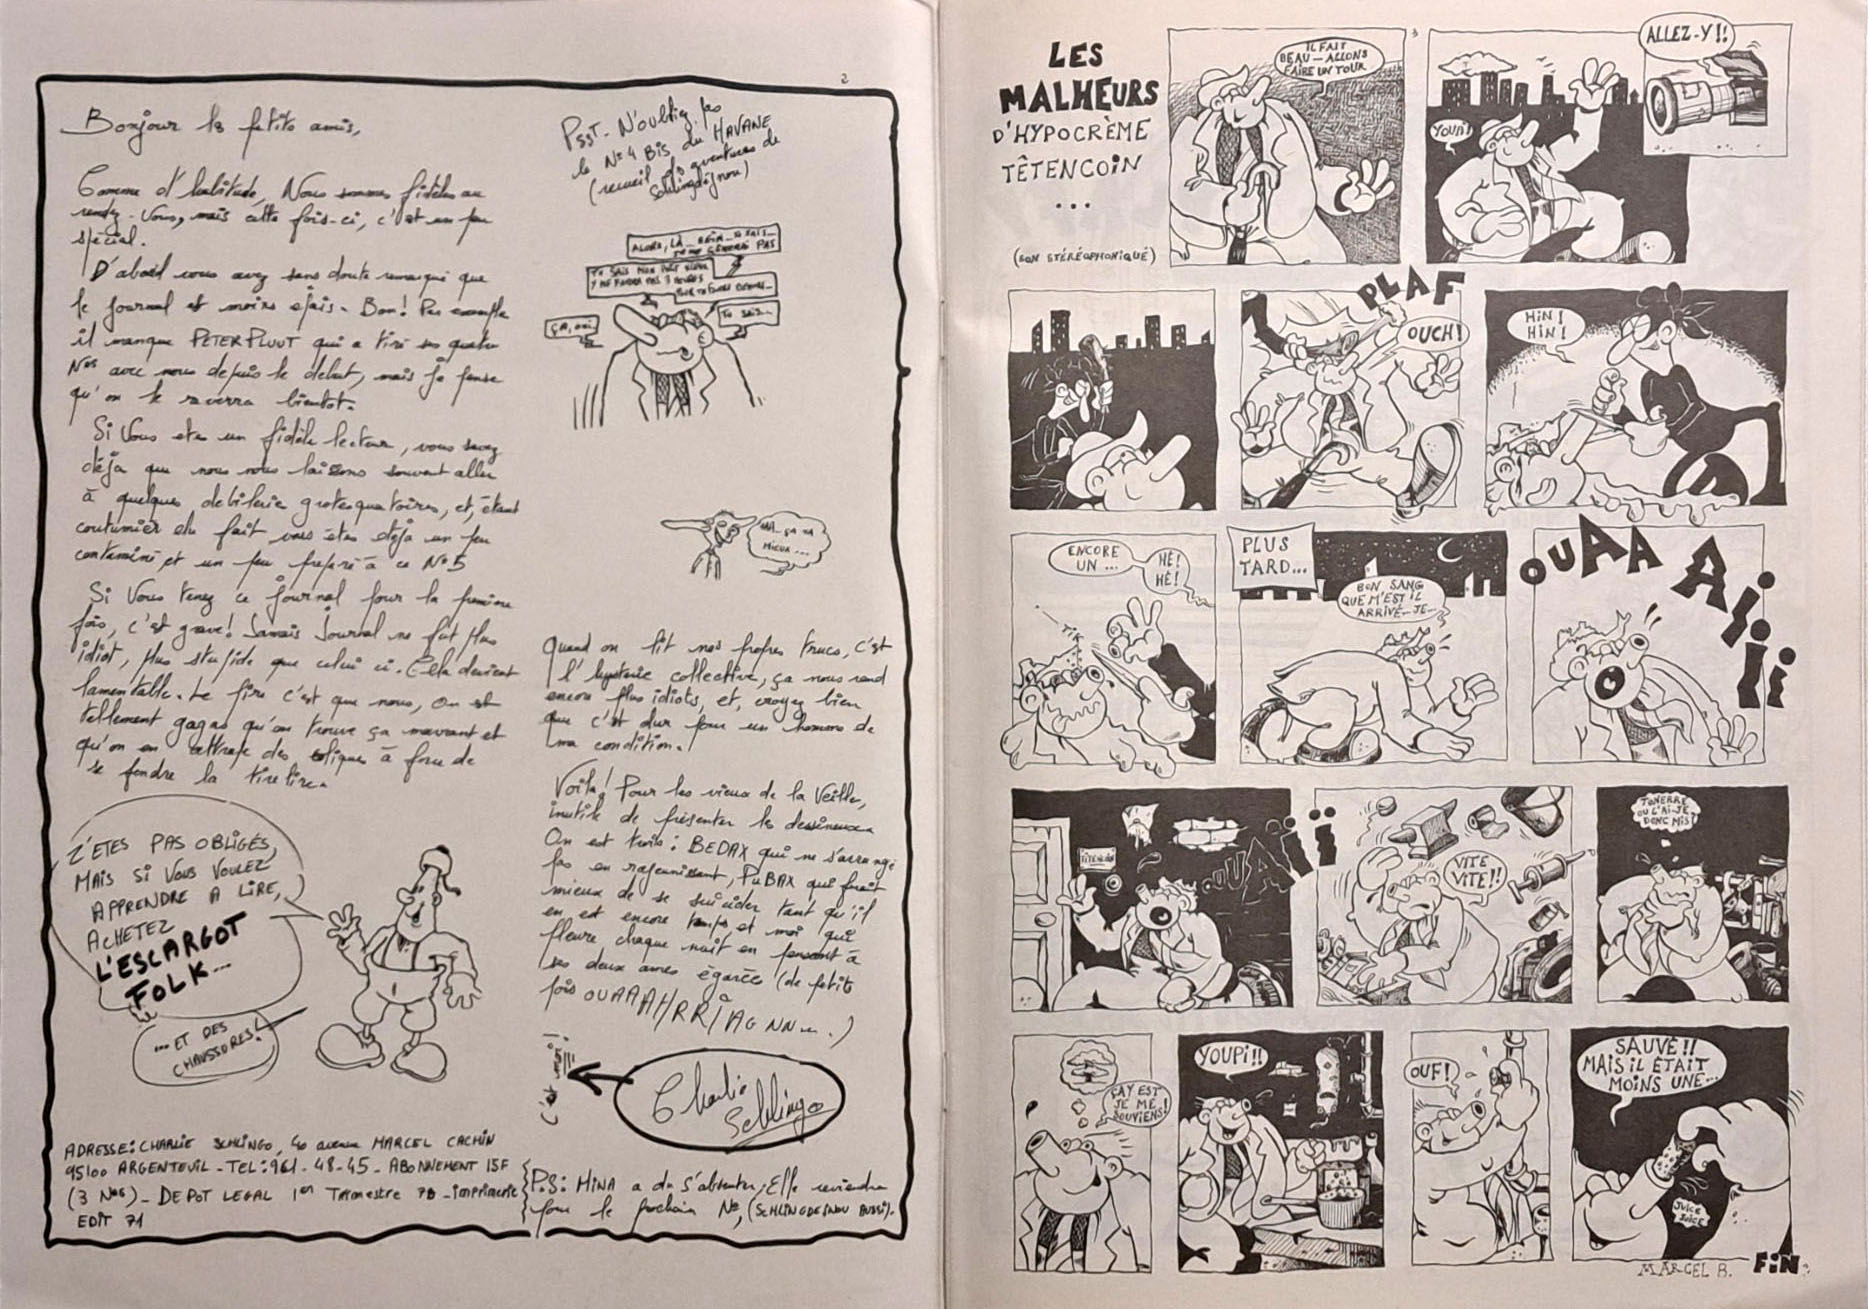 2
Bonjour les petits amis,
Comme d'habitude, Nous sommes fidèles au
rendez-vous, mais cette fois-ci, c'est un peu
spécial.
D'abord vous avez sans doute remarqué que
le journal est moins épais. Bon! Par exemple
il manque PETER PLUUT qui a tiré ses quatre
Nos avec nous depuis le début, mais je pense
qu'on le reverra bientôt.
Si Vous etes un fidèle lecteur, vous savez
déja que nous nous laissons souvent aller
à quelques debilerie grotesquatoires, et, étant
coutumier du fait vous êtes déja un peu
contaminé et un peu preparé à ce No 5
Si Vous tenez ce journal pour la premiere
fois, c'est grave! Jamais Journal ne fut plus
idiot, plus stupide que celui ci. Cela devient
lamentable. Le pire c'est que nous, on est
tellement gagas qu'on trouve ça marrant et
qu'on en attrape des coliques à force de
se fendre la tirelire.
Z'ETES PAS OBLIGÉS,
MAIS SI VOUS VOULEZ
APPRENDRE A LIRE,
ACHETEZ
L'ESCARGOT
FOLK...
...ET DES
CHAUSSURES!
ADRESSE: CHARLIE SCHLINGO, 40 avenue MARCEL CACHIN
95100 ARGENTEUIL - TEL: 961-48-45 - ABONNEMENT 15F
(3 Nos) - DEPOT LEGAL 1er Trimestre 78 - imprimerie
EDIT 71
PSST- N'oubliez pas
le No 4 BIS du HAVANE
(recueil des aventures de
Schlingdegnou)
ALORS, LÀ
GÊNERAI PAS
TU SAIS MON PETIT
Y ME FAUDRA PAS 3 HEURES
POUR
ÇA, OUI
TU SAIS...
HAA... ÇA VA
MIEUX...
Quand on lit nos propres trucs, c'est
l'hysterie collective, ça nous rend
encore plus idiots, et, croyez bien
que c'est dur pour un homme de
ma condition!
Voila! Pour les vieux de la Veille,
inutile de présenter les dessineux.
On est trois: BEDAX qui ne s'arrange
pas en rajeunissant, PUBAX qui ferait
mieux de se suicider tant qu'il
en est encore temps et moi qui
pleure, chaque nuit en pensant à
ses deux ames égarées (de petits
pois OUAAAH/RR/AGNN...)
Charlie
Schlingo
P.S: MINA a du s'absenter. Elle reviendra
pour le prochain No, (SCHLINGDEGNOU AUSSI).
3
LES
MALHEURS
D'HYPOCRÈME
TÊTENCOIN
...
(SON STÉRÉOPHONIQUE)
IL FAIT
BEAU - ALLONS
FAIRE UN TOUR
ALLEZ-Y!!
YOUPI!
PLAF
OUCH!
HIN!
HIN!
ENCORE
UN...
HÉ!
HÉ!
PLUS
TARD...
BON SANG
QUE M'EST IL
ARRIVÉ-JE-
OUAAAÏïïï
TÊTENCOIN
OUAïïï
VITE
VITE!!
TONERRE
OU L'AI-JE
DONC MIS!
ÇAY EST
JE ME
SOUVIENS!
YOUPI!!
OUF!
SAUVÉ!!
MAIS IL ÉTAIT
MOINS UNE...
JUICE
JUICE
MARCEL B.
FIN